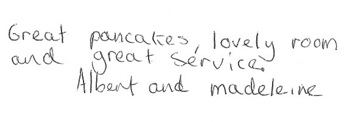 Great pancakes, lovely room
and great service.
Albert and madeleine